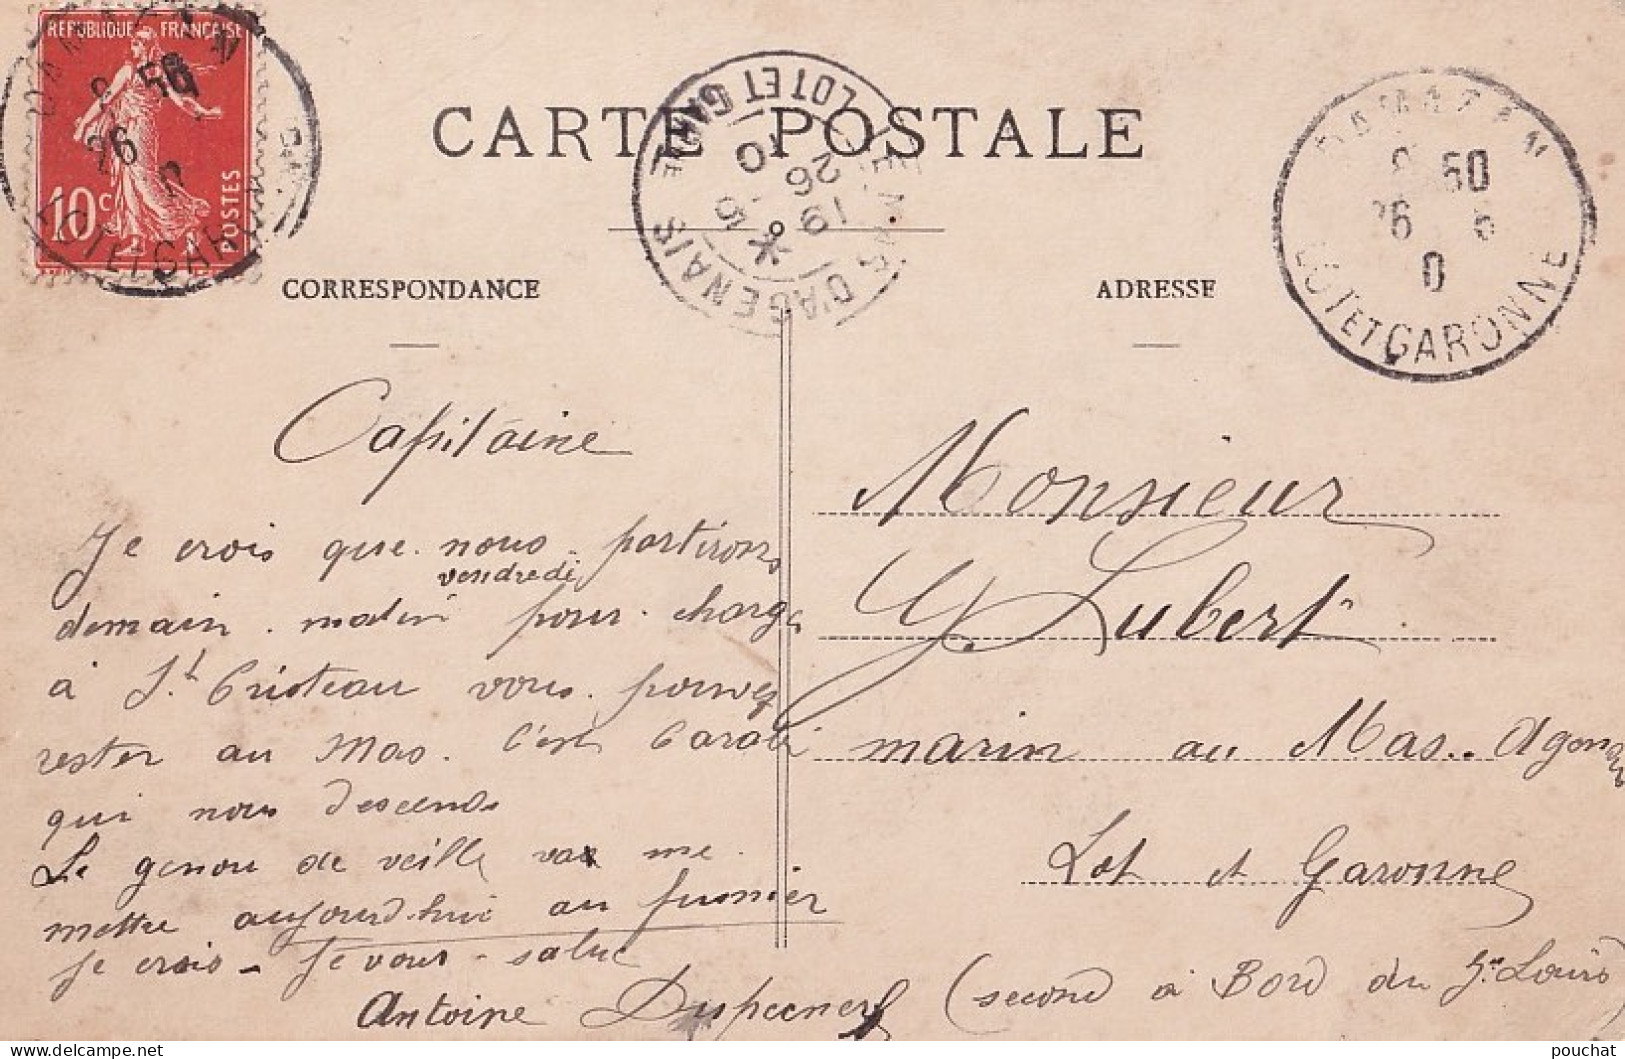 REPUBLIQUE FRANÇAISE
10c
POSTES
LOT ET GAR
CARTE POSTALE
MAS D'AGENAIS
LOT ET GARONNE
19
26
DAMAZAN
50
26 6
0
LOT ET GARONNE
CORRESPONDANCE
ADRESSE
Capitaine
Je crois que nous partirons
vendredi
demain matin pour charge
à St Cristeau vous pouvez
rester au Mas. C'est Carabi
qui nous descends
Le genou de veille va me
mettre aujourd'hui au fumier
Je crois - Je vous salue
Antoine
Monsieur
Y Lubert
marin au Mas. Agenais
Lot et Garonne
(second à Bord du St Louis)
pouchat